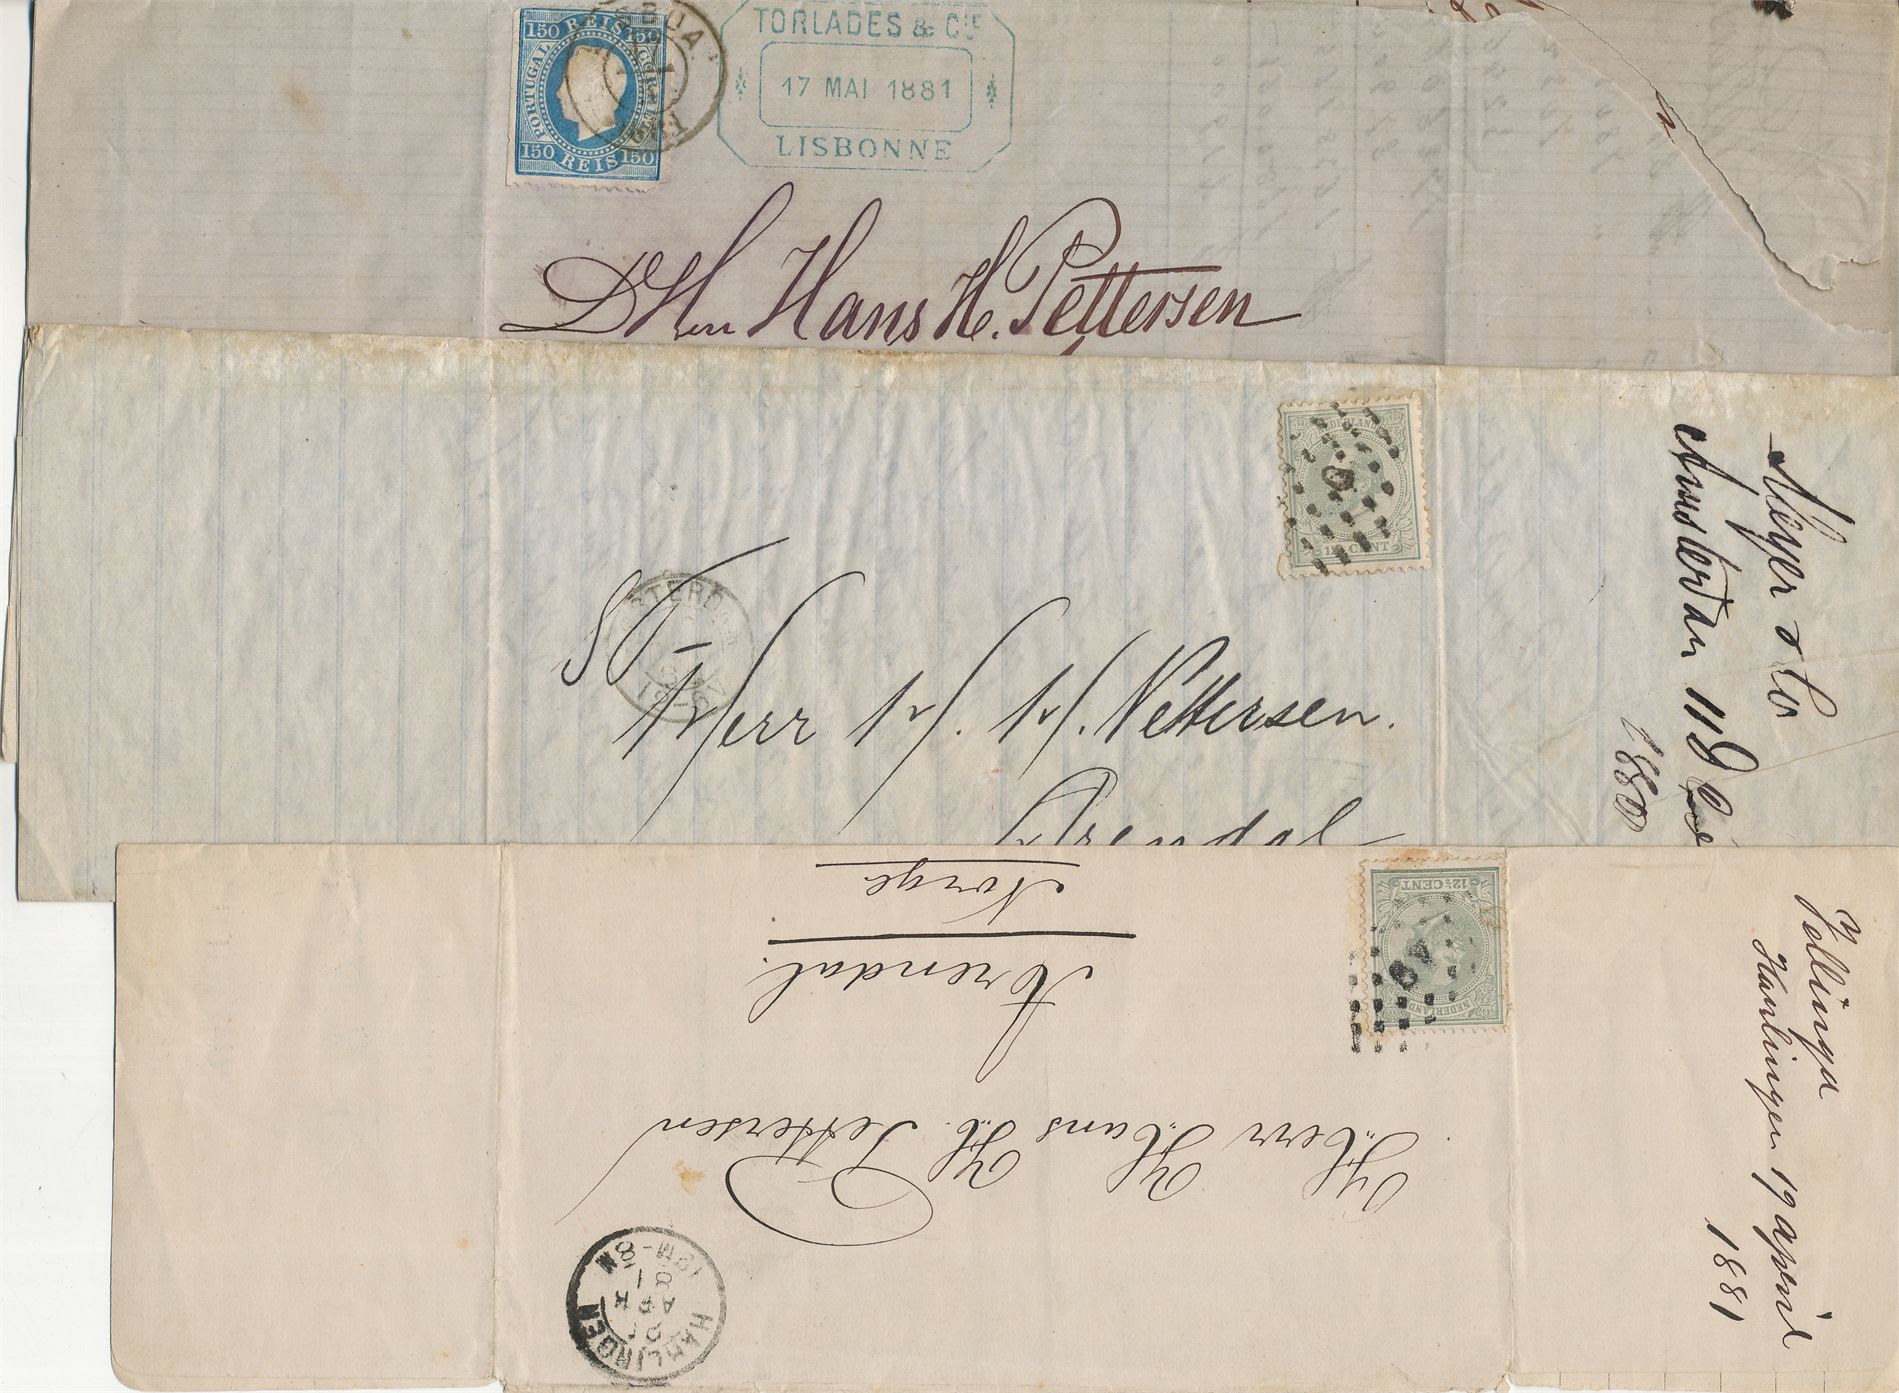 150 REIS 150
PORTUGAL
CORREIO
150 REIS 150
TORLADES & CIE
17 MAI 1881
LISBONNE
D Hrn Hans H. Pettersen
NEDERLAND
12½ CENT
ST
Herr H/. H/. Pettersen.
Arendal
Meyer & Co
Amsterdam 11 Dec
1880
Herr Hans H. Pettersen
Arendal.
Norge
12½ CENT
NEDERLAND
48
HARLINGEN
20
APR
81
8M-12M
Jellinga
Harlingen 19 april
1881